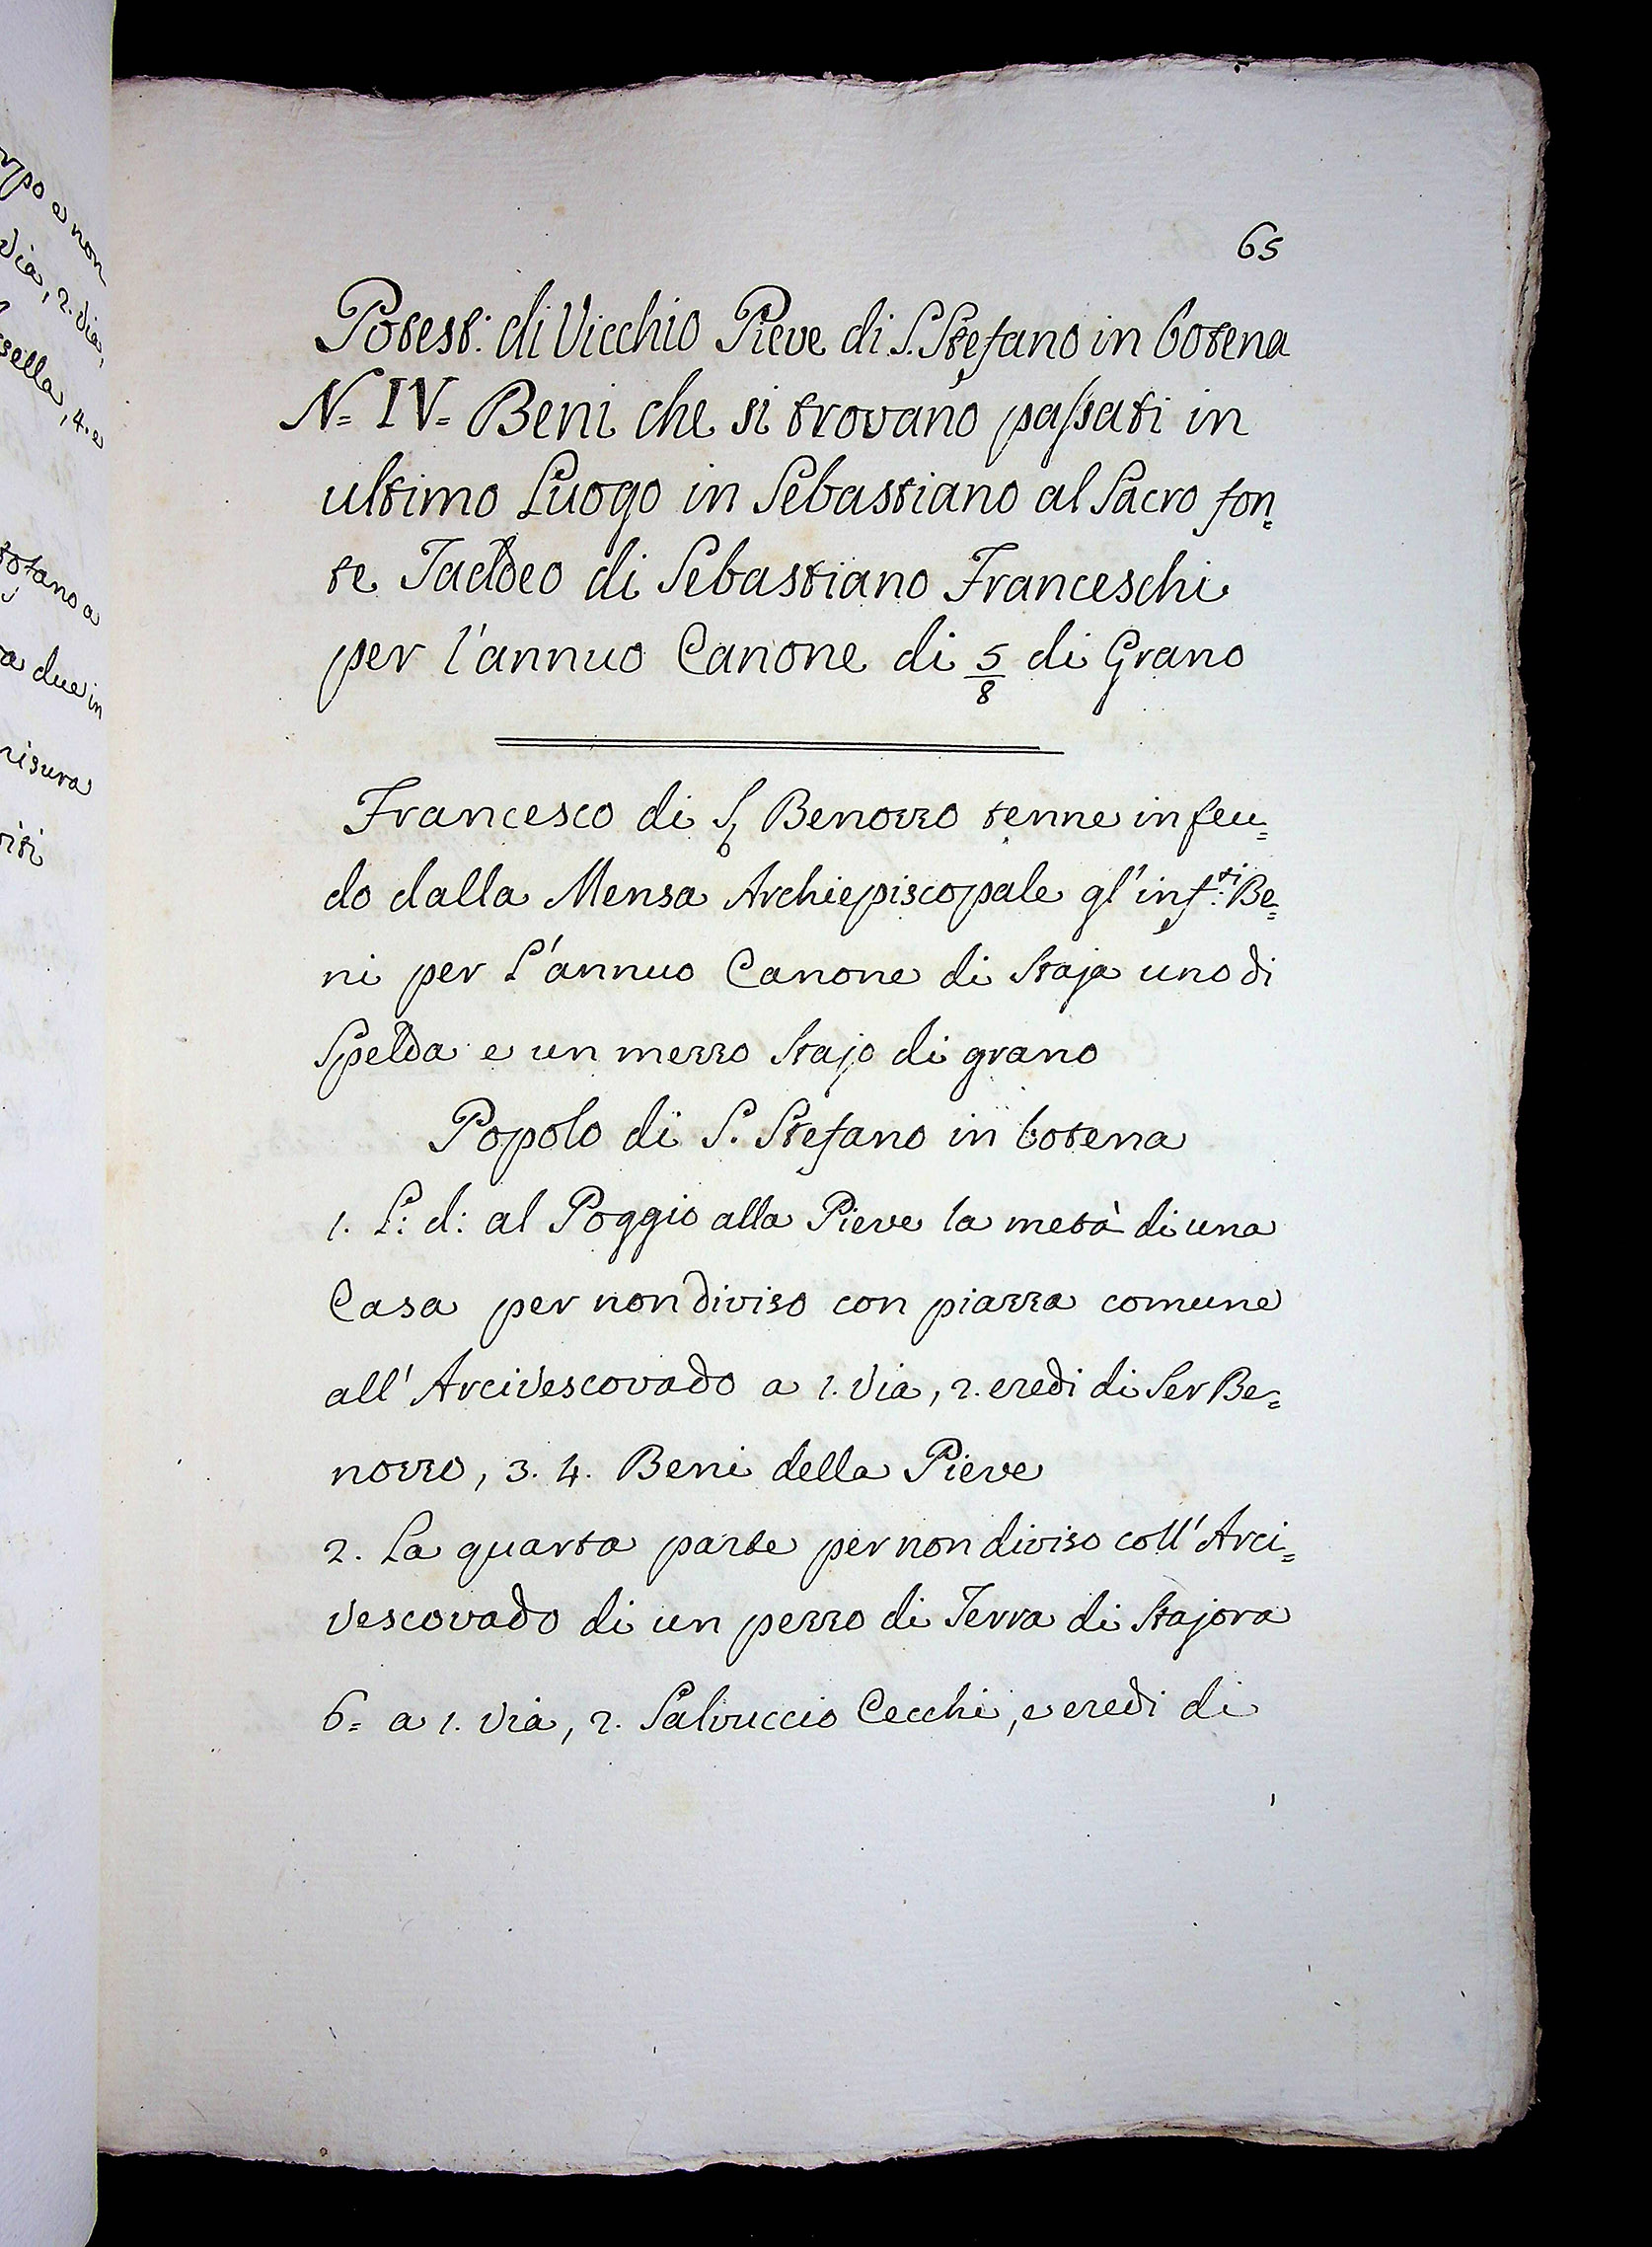 65
Potest: di Vicchio Pieve di S. Stefano in botena
N= IV= Beni che si trovano passati in
ultimo Luogo in Sebastiano al Sacro fon=
te Taddeo di Sebastiano Franceschi
per l'annuo Canone di 5/8 di Grano
Francesco di Sr Benozzo tenne in feu=
do dalla Mensa Archiepiscopale gl' inf.ti Be=
ni per L'annuo Canone di Staja uno di
Spelda e un mezzo Stajo di grano
Popolo di S. Stefano in botena
1. L: d: al Poggio alla Pieve la metà di una
Casa per non diviso con piazza comune
all' Arcivescovado a 1. Via, 2. eredi di Ser Be=
nozzo, 3. 4. Beni della Pieve
2. La quarta parte per non diviso coll' Arci=
vescovado di un pezzo di Terra di Stajora
6= a 1. Via, 2. Salvuccio Cecchi, e eredi di